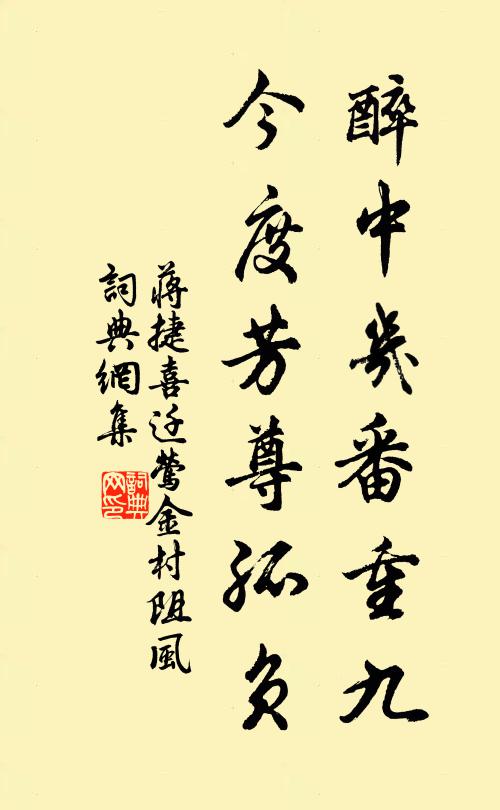 醉中幾番重九
今度芳尊孤負
蔣捷喜迁鶯金村阻風
詞典網集
詞典網印